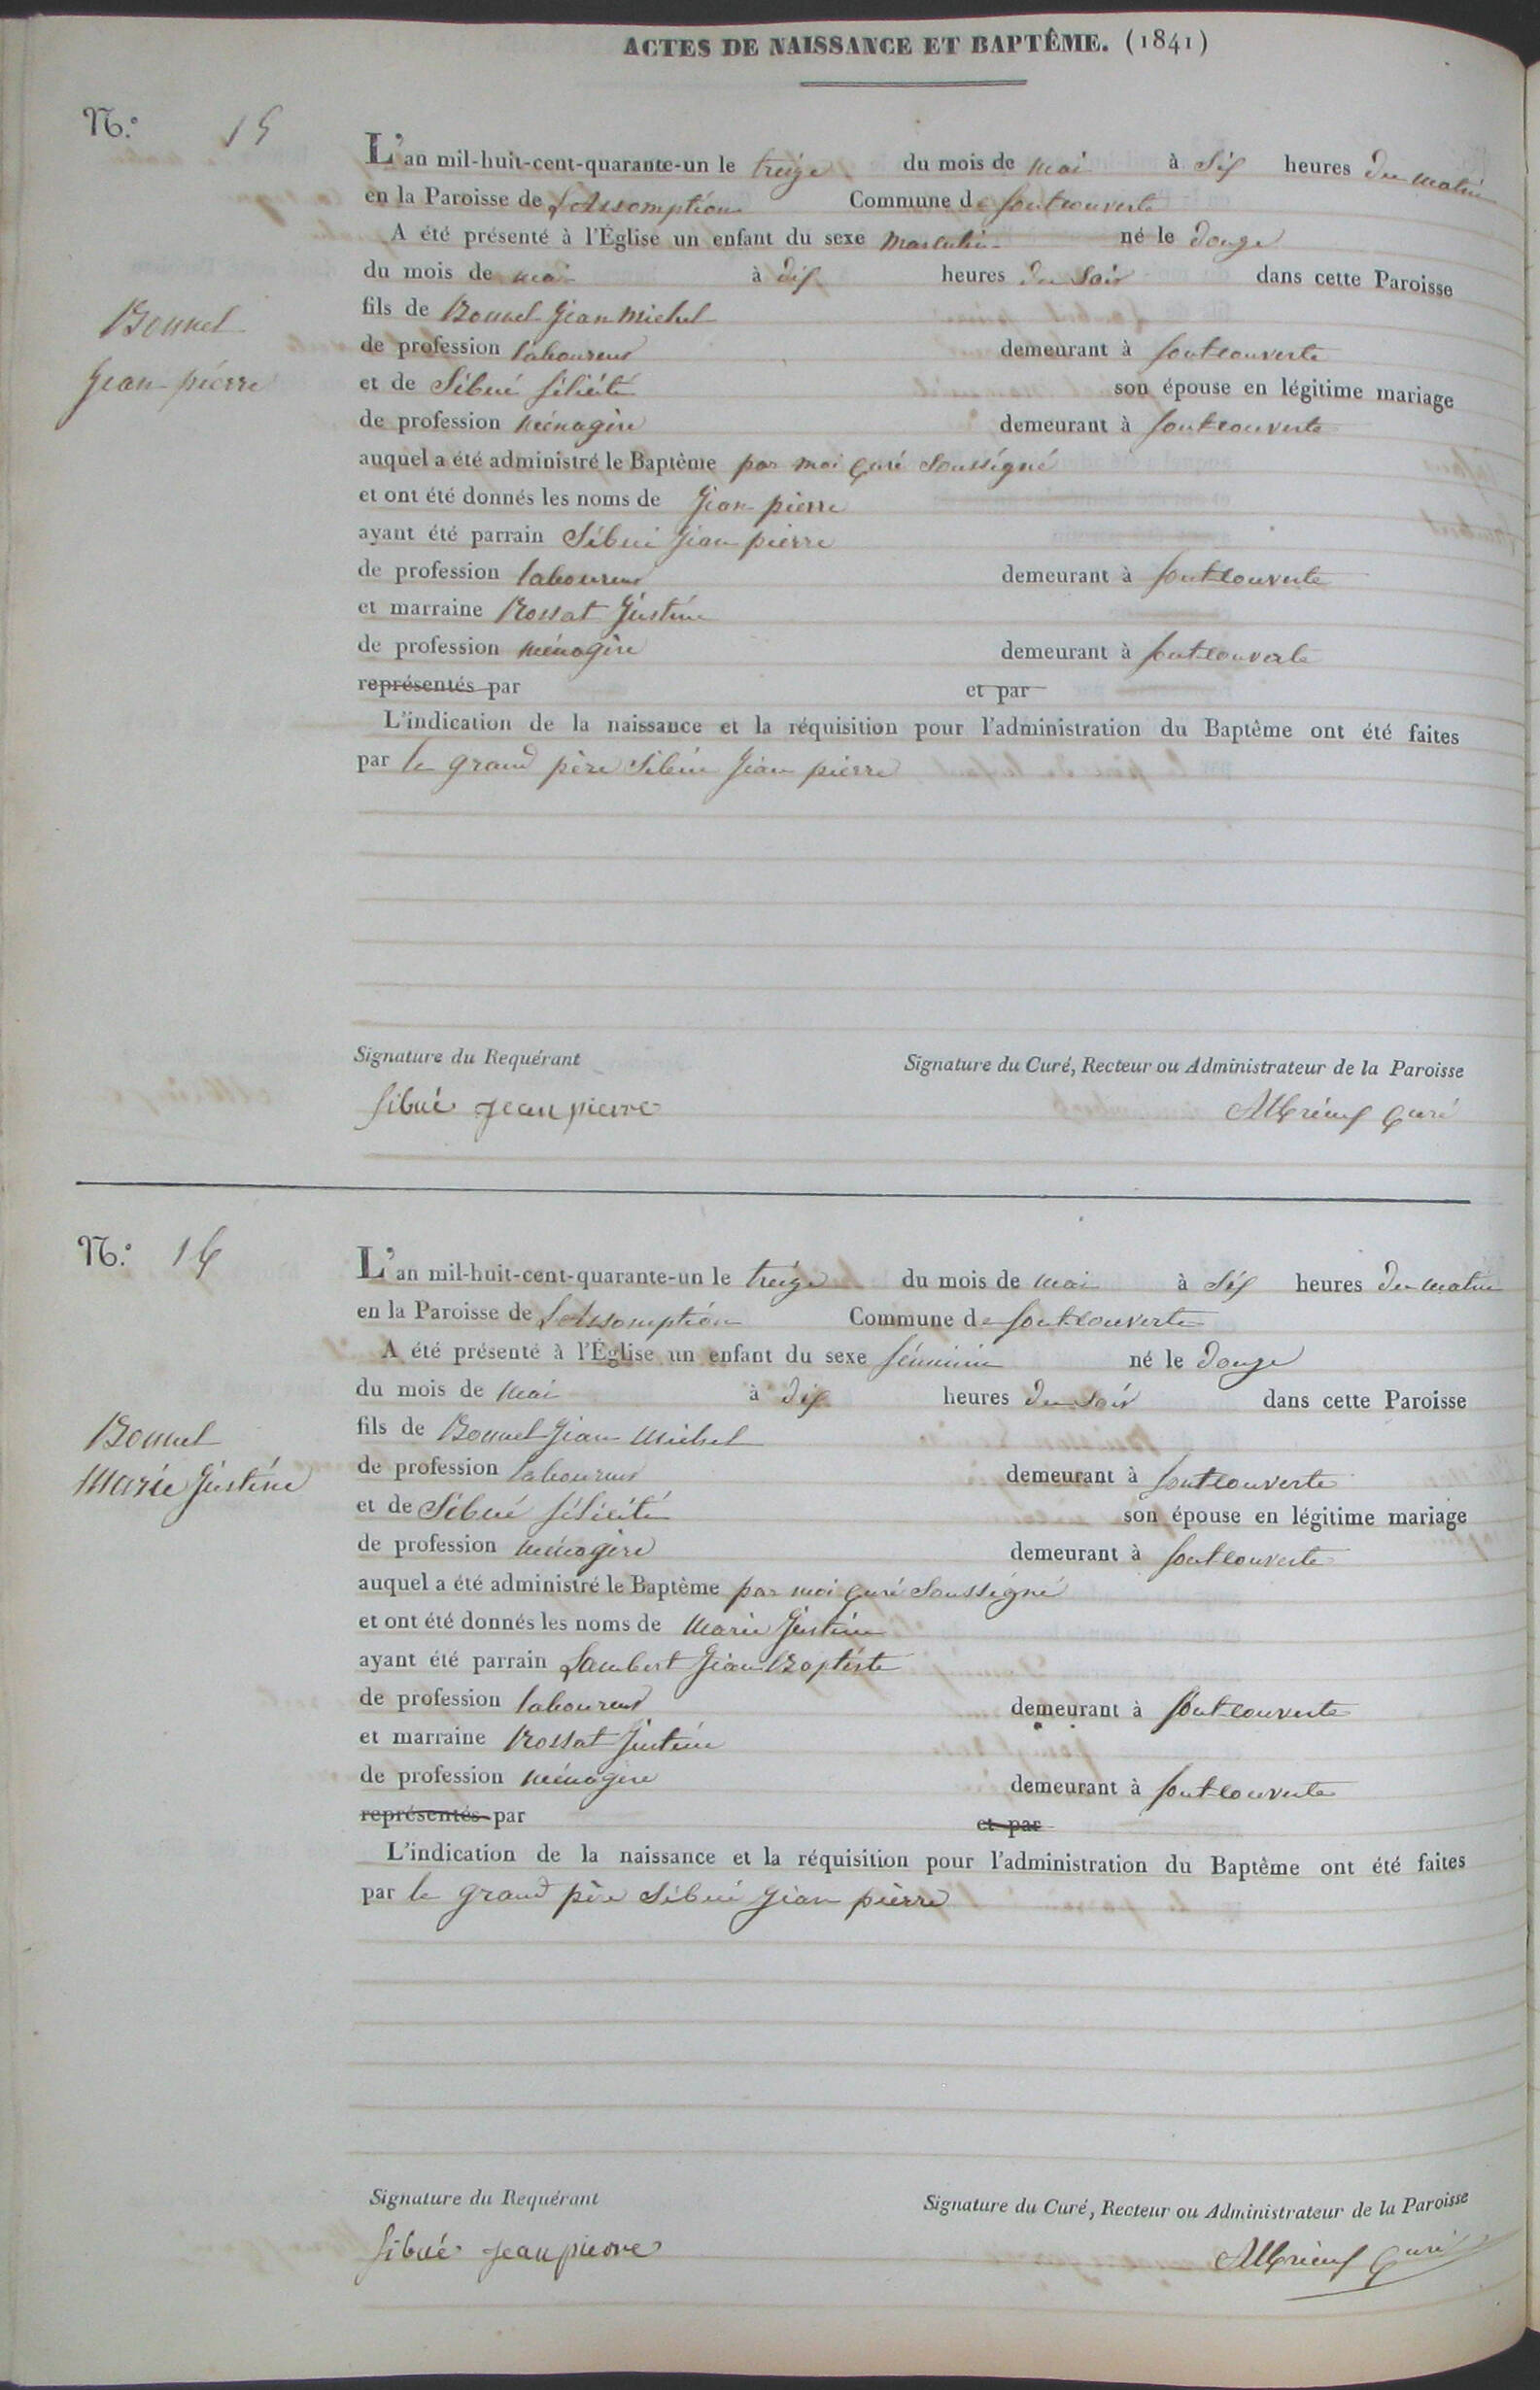 ACTES DE NAISSANCE ET BAPTÊME. (1841)
N.° 15
L'an mil-huit-cent-quarante-un le treize du mois de mai à six heures du matin
en la Paroisse de L'Assomption Commune de fontcouverte
A été présenté à l'Église un enfant du sexe masculin né le douze
du mois de mai à dix heures du soir dans cette Paroisse
Bonnel
Jean pierre
fils de Bonnel Jean Michel
de profession laboureur demeurant à fontcouverte
et de Sibué félicité son épouse en légitime mariage
de profession ménagère demeurant à fontcouverte
auquel a été administré le Baptême par moi Curé Soussigné
et ont été donnés les noms de Jean pierre
ayant été parrain Sibué Jean pierre
de profession laboureur demeurant à fontcouverte
et marraine Rossat Justine
de profession ménagère demeurant à fontcouverte
représentés par et par
L'indication de la naissance et la réquisition pour l'administration du Baptême ont été faites
par le grand père Sibué Jean pierre
Signature du Requérant Signature du Curé, Recteur ou Administrateur de la Paroisse
Sibué jean pierre Curé
N.° 16
L'an mil-huit-cent-quarante-un le treize du mois de mai à six heures du matin
en la Paroisse de L'Assomption Commune de fontcouverte
A été présenté à l'Église un enfant du sexe féminin né le douze
du mois de mai à dix heures du soir dans cette Paroisse
Bonnel
Marie Justine
fils de Bonnel Jean Michel
de profession laboureur demeurant à fontcouverte
et de Sibué félicité son épouse en légitime mariage
de profession ménagère demeurant à fontcouverte
auquel a été administré le Baptême par moi Curé Soussigné
et ont été donnés les noms de Marie Justine
ayant été parrain Lambert Jean Baptiste
de profession laboureur demeurant à fontcouverte
et marraine Rossat Justine
de profession ménagère demeurant à fontcouverte
représentés par et par
L'indication de la naissance et la réquisition pour l'administration du Baptême ont été faites
par le grand père Sibué Jean pierre
Signature du Requérant Signature du Curé, Recteur ou Administrateur de la Paroisse
Sibué jean pierre Curé